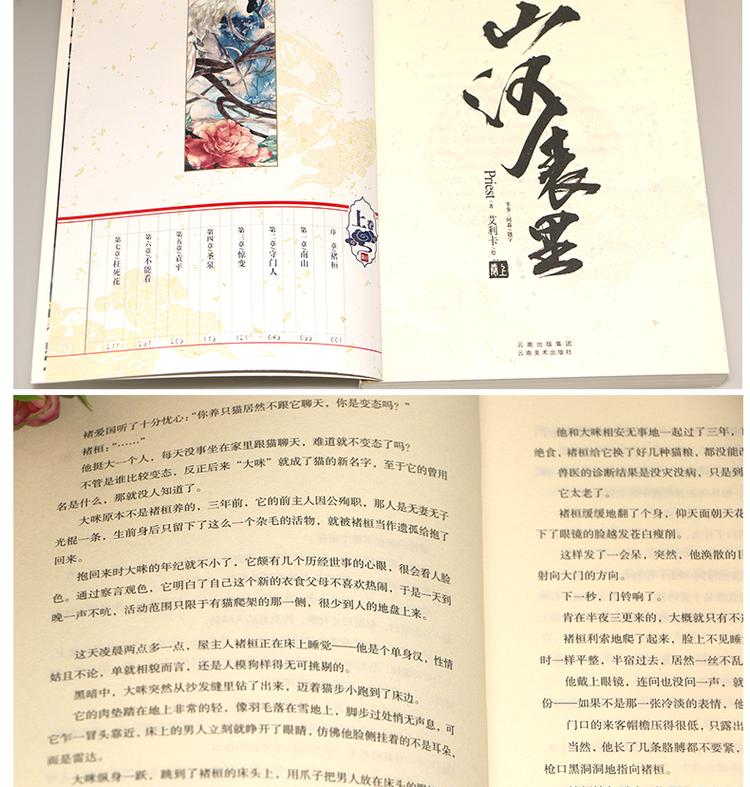 上卷
序 章/褚桓
第一章/南山
第二章/守门人
第三章/惊变
第四章/圣泉
第五章/袁平
第六章/不能看
第七章/枉死花
001
121
175
山河表里
Priest 著
艾利卡 绘
题字
上
云南出版集团
云南美术出版社
褚爱国听了十分忧心：“你养只猫居然不跟它聊天，你是变态吗？”
褚桓：“……”
他挺大一个人，每天没事坐在家里跟猫聊天，难道就不变态了吗？
不管是谁比较变态，反正后来“大咪”就成了猫的新名字，至于它的曾用
名是什么，那就没人知道了。
大咪原本不是褚桓养的，三年前，它的前主人因公殉职，那人是无妻无子
光棍一条，生前身后只留下了这么一个杂毛的活物，就被褚桓当作遗孤给抱了
回来。
抱回来时大咪的年纪就不小了，它颇有几个历经世事的心眼，很会看人脸
色。通过察言观色，它明白了自己这个新的衣食父母不喜欢热闹，于是一天到
晚一声不吭，活动范围只限于有猫爬架的那一侧，很少到人的地盘上来。
这天凌晨两点多一点，屋主人褚桓正在床上睡觉——他是个单身汉，性情
姑且不论，单就相貌而言，还是人模狗样得无可挑剔的。
黑暗中，大咪突然从沙发缝里钻了出来，迈着猫步小跑到了床边。
它的肉垫踏在地上非常的轻，像羽毛落在雪地上，脚步过处悄无声息，可
它乍一冒头靠近，床上的男人立刻就睁开了眼睛，仿佛他脸侧挂着的不是耳朵，
而是雷达。
大咪纵身一跃，跳到了褚桓的床头上，用爪子把男人放在床头的眼
他和大咪相安无事地一起过了三年，
绝食，褚桓给它换了好几种猫粮，都没能改
兽医的诊断结果是没灾没病，只是到
它太老了。
褚桓缓缓地翻了个身，仰天面朝天花
下了眼镜的脸越发苍白瘦削。
这样发了一会呆，突然，他涣散的目
射向大门的方向。
下一秒，门铃响了。
肯在半夜三更来的，大概就只有不
褚桓利索地爬了起来，脸上不见睡
时一样平整，半宿过去，居然一丝不乱
他戴上眼镜，连问也没问一声，就
份——如果不是那一张冷淡的表情，他
门口的来客帽檐压得很低，只露出
当然，他长了几条胳膊都不要紧，
枪口黑洞洞地指向褚桓。